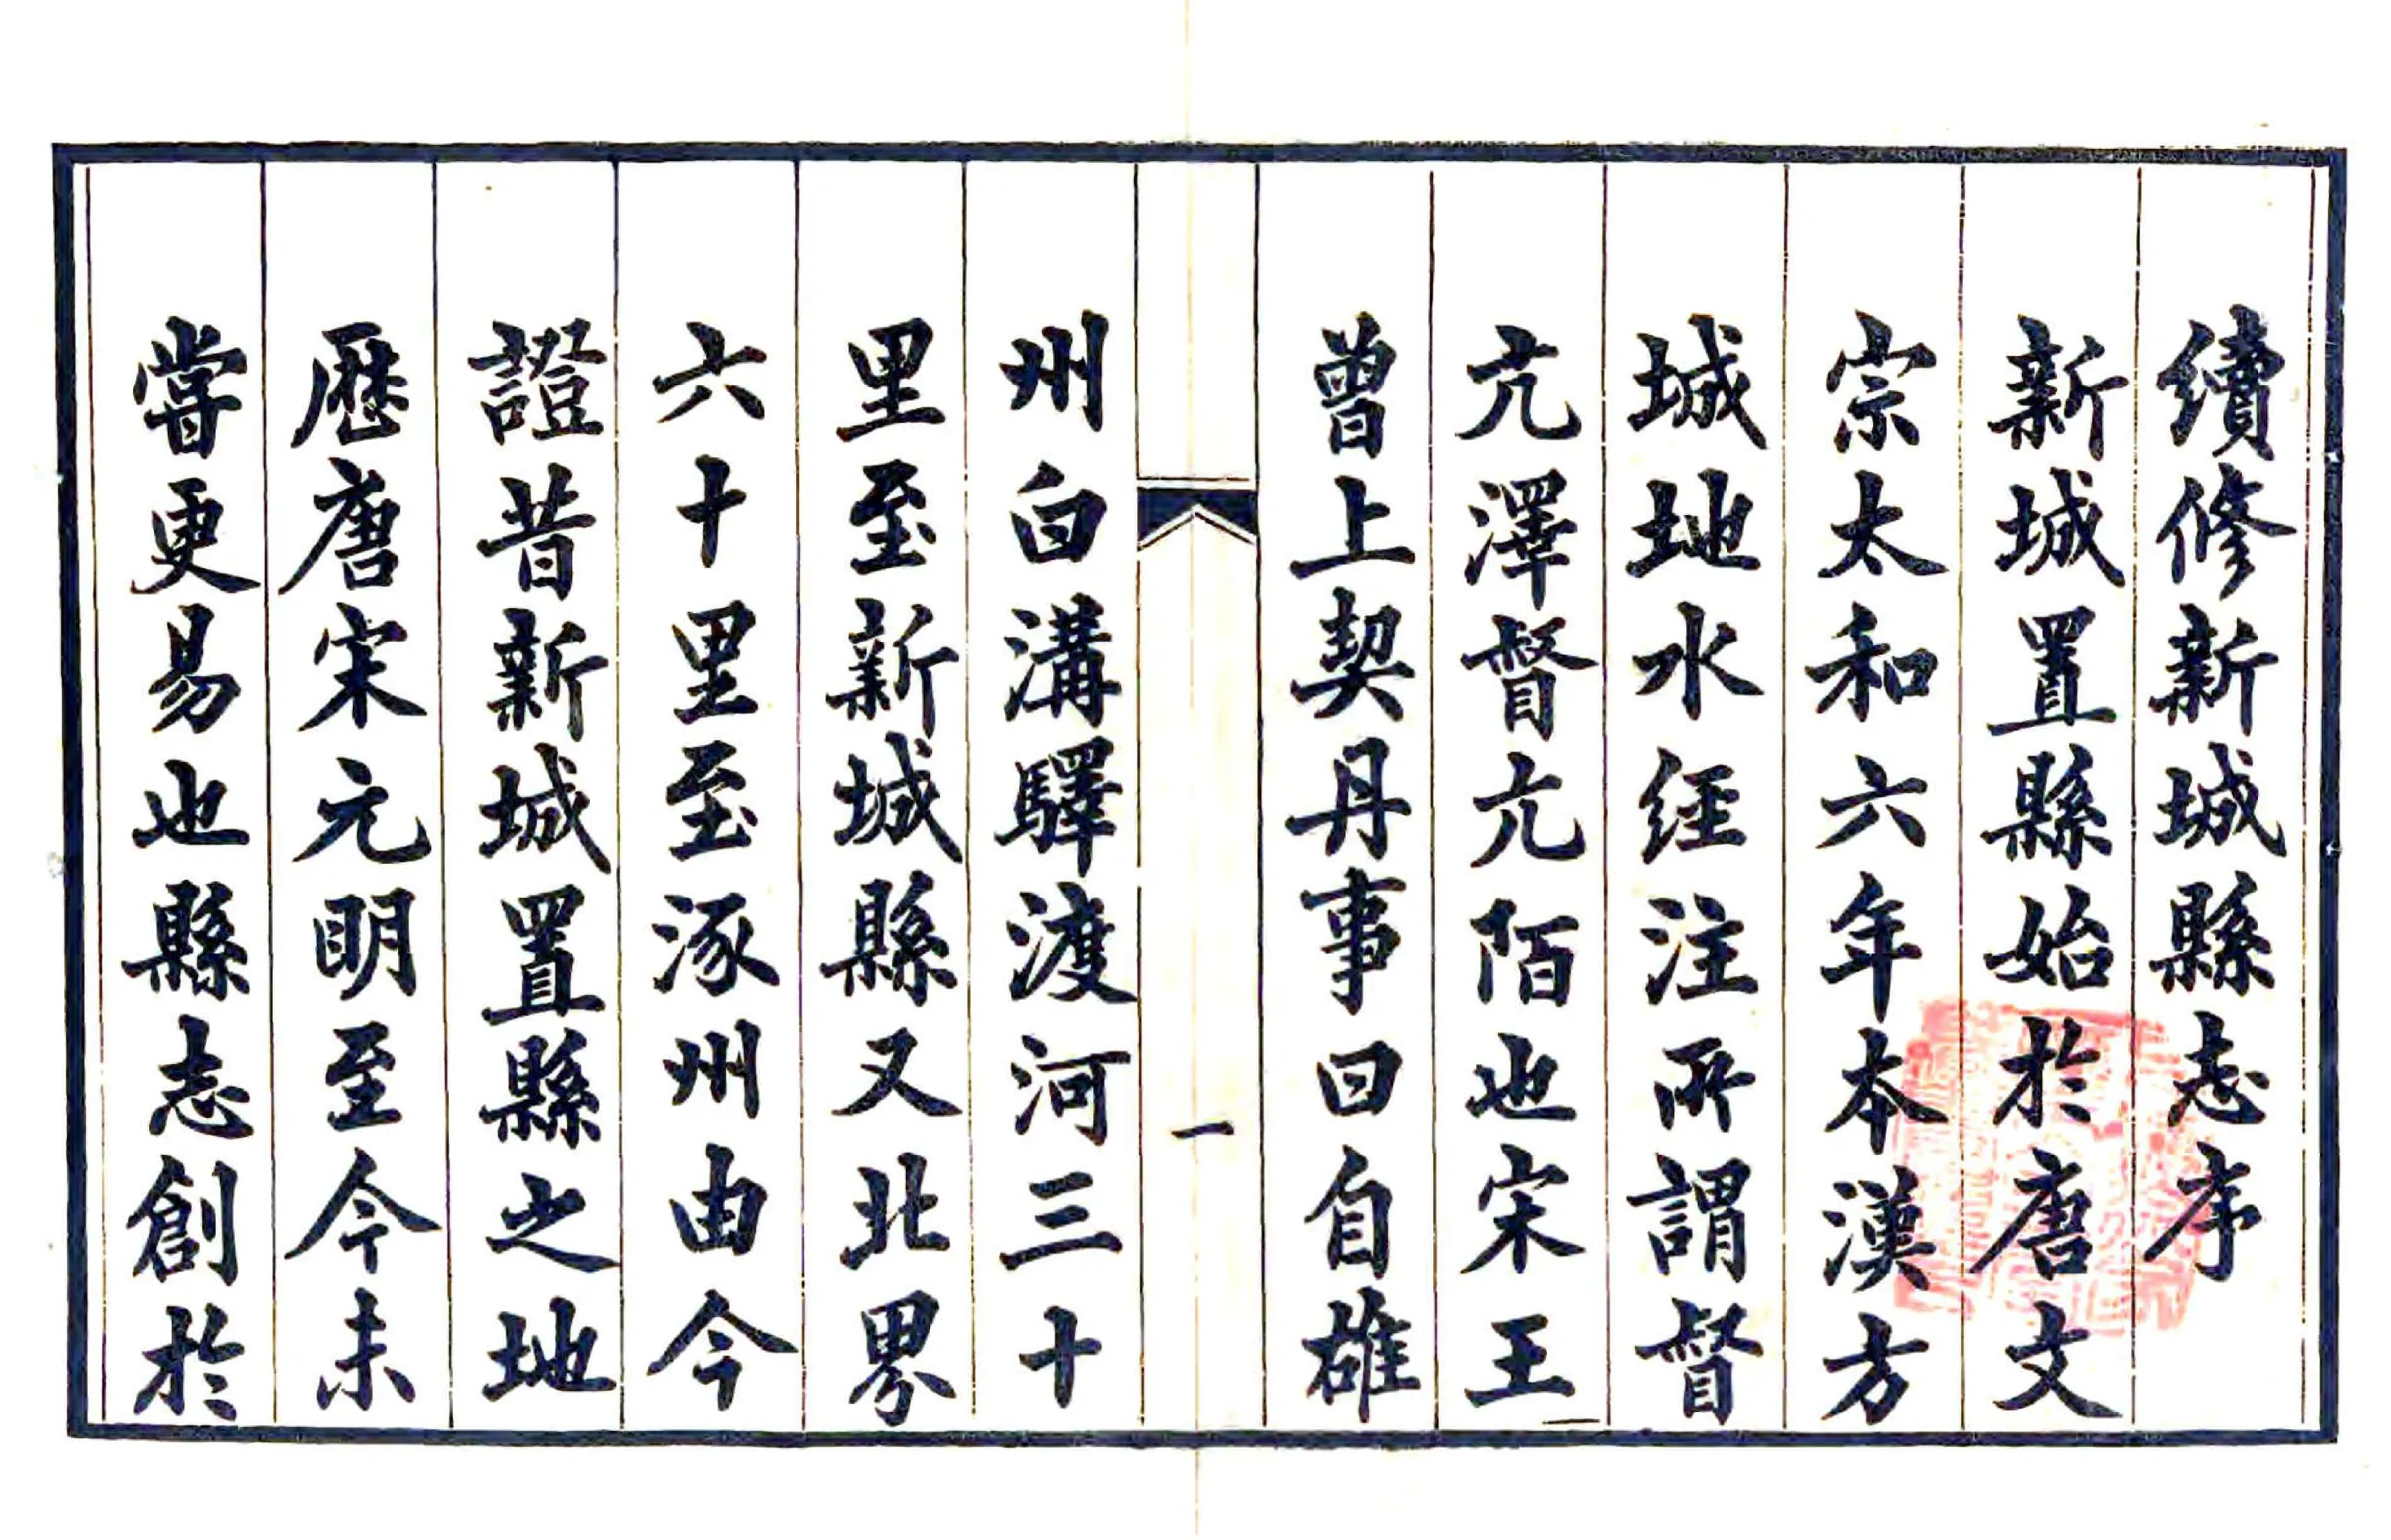 續修新城縣志序
新城置縣始於唐文
宗太和六年本漢方
城地水經注所謂督
亢澤督亢陌也宋王
曾上契丹事曰自雄
一
州白溝驛渡河三十
里至新城縣又北界
六十里至涿州由今
證昔新城置縣之地
歷唐宋元明至今未
嘗更易也縣志創於